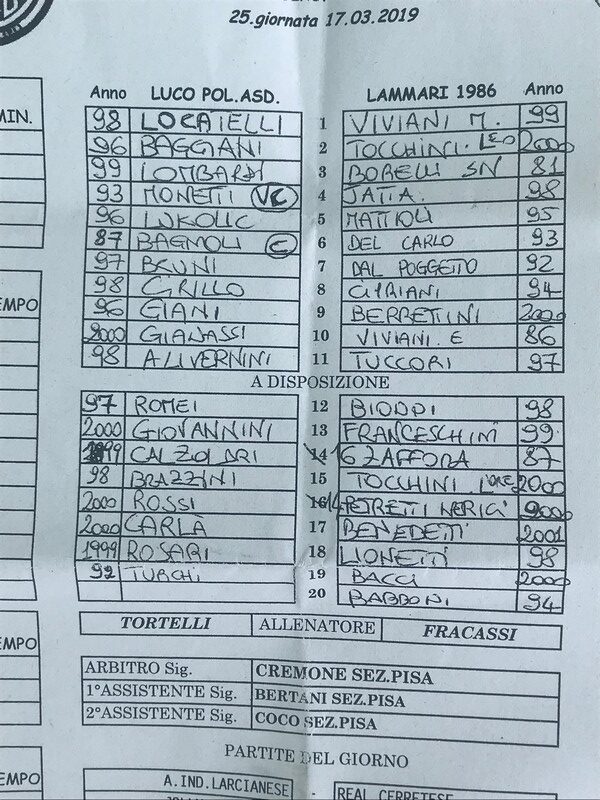 25.giornata 17.03.2019
MIN.
Anno LUCO POL.ASD. LAMMARI 1986 Anno
98 LOCATELLI 1 VIVIANI M. 99
96 BAGGIANI 2 TOCCHINI LEO 2000
99 LOMBARDI 3 BORELLI SN 81
93 MONETTI VC 4 JATTA. 98
96 5 MATTIOLI 95
87 BAGNOLI C 6 DEL CARLO 93
97 BRUNI 7 DAL POGGETTO 92
98 GRILLO 8 CIPRIANI 94
96 GIANI 9 BERRETTINI 2000
2000 GIANASSI 10 VIVIANI. E 86
98 ALIVERNINI 11 TUCCORI 97
A DISPOSIZIONE
97 ROMEI 12 98
2000 GIOVANNINI 13 FRANCESCHINI 99
1999 CALZOLARI 14 16 ZAFFORA 87
98 BRAZZINI 15 TOCCHINI 2000
2000 ROSSI 16 14 PETRETTI NERICI 2000
2000 CARLÀ 17 BENEDETTI 2001
1999 ROSARI 18 LIONETTI 98
92 TURCHI 19 BACCI 2000
20 BABBONI 94
TORTELLI ALLENATORE FRACASSI
ARBITRO Sig. CREMONE SEZ.PISA
1°ASSISTENTE Sig. BERTANI SEZ.PISA
2°ASSISTENTE Sig. COCO SEZ.PISA
PARTITE DEL GIORNO
A.IND.LARCIANESE - REAL CERRETESE
EMPO
EMPO
EMPO